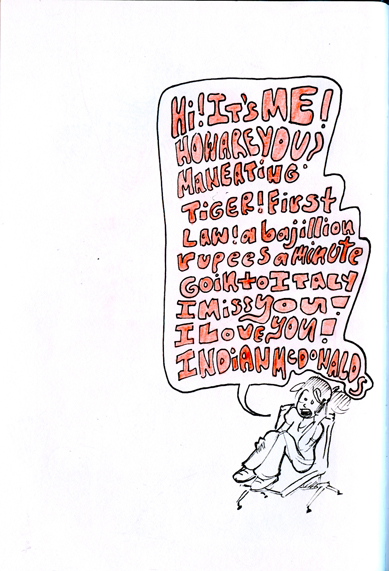 Hi! IT'S ME!
HOW ARE YOU?
MANEATING
TIGER! First
LAW! a bajillion
rupees a minute
GOIN to ITALY
I Miss you!
I LOVE YOU!
INDIAN McDONALDS